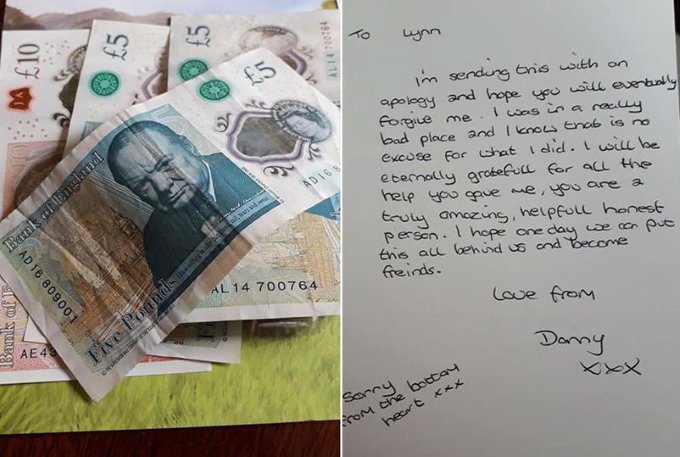 £10
£5
£5
AL14 700764
£5
Bank of England
AD16 8
AD16 809001
AL14 700764
Five Pounds
Bank of
AE45
To Lynn
I'm sending this with an
apology and hope you will eventually
forgive me. I was in a really
bad place and I know that is no
excuse for what I did. I will be
eternally gratefull for all the
help you gave me, you are a
truly amazing, helpfull honest
person. I hope one day we can put
this all behind us and become
freinds.
Love from
Danny
xxx
Sorry
from the bottom
heart xxx